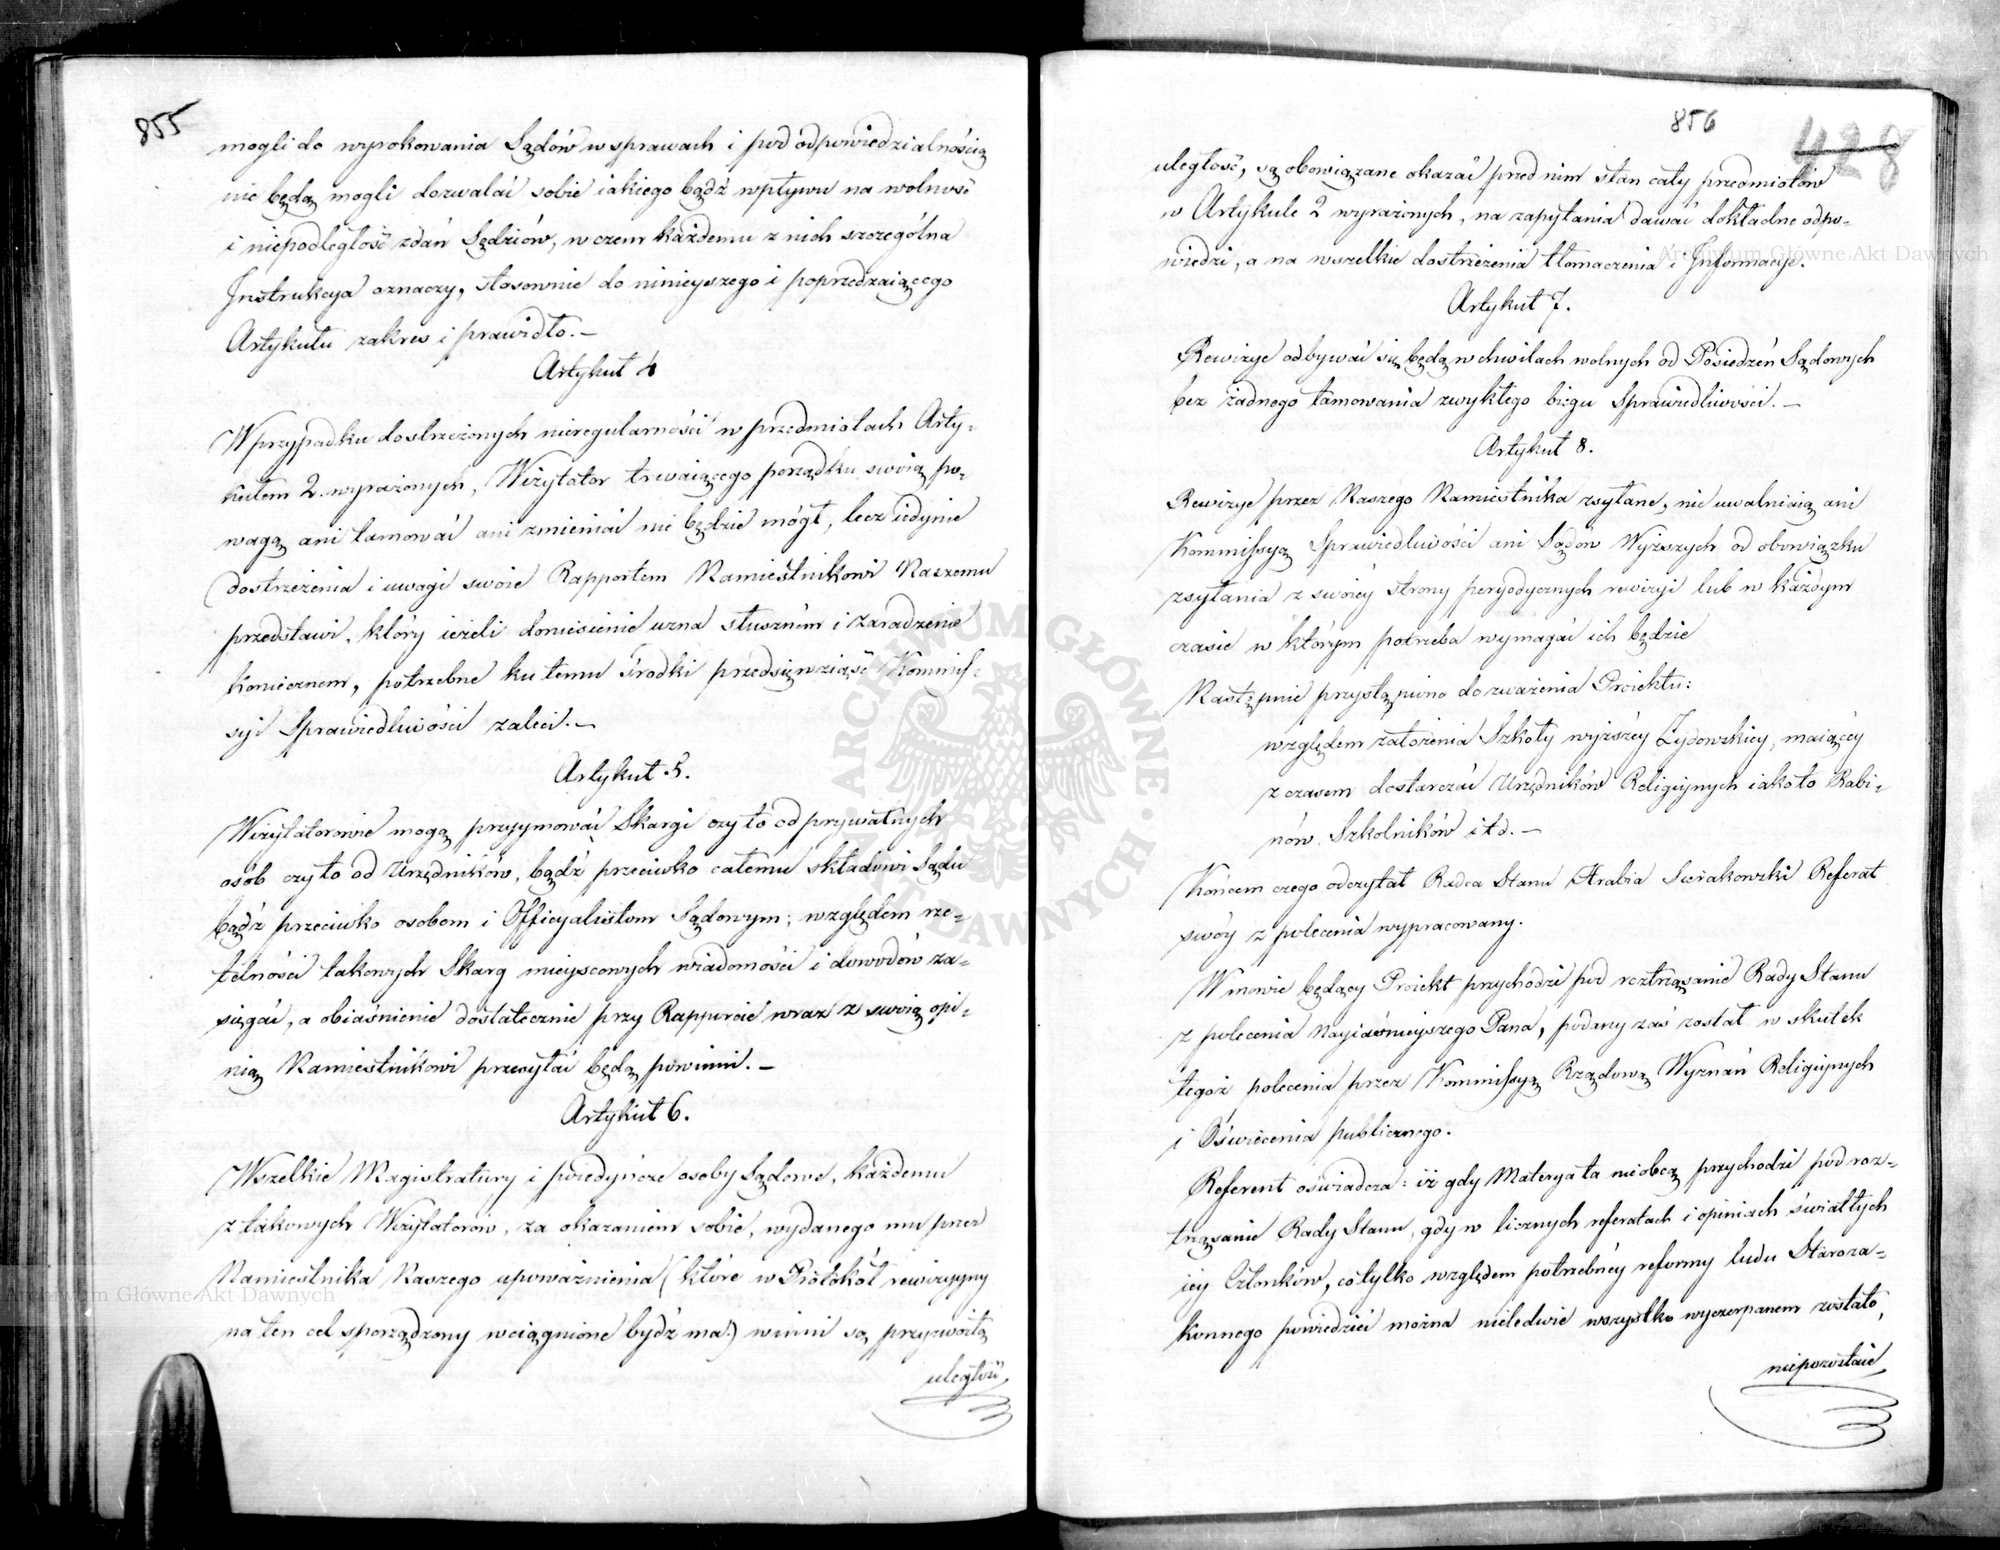 855
mogli do wyrokowania Sądów w sprawach i pod odpowiedzialnością
nie będą mogli dozwalać sobie iakiego bądź wpływu na wolność
i niepodległość zdań Sędziów, w czem każdemu z nich szczególna
Instrukcya oznaczy, stosownie do ninieyszego i poprzedzaiącego
Artykułu zakres i prawidło. —
Artykuł 4
W przypadku dostrzeżonych nieregularności w przedmiotach Arty-
kułem 2. wyrażonych, Wizytator trwaiącego porządku swoią po-
wagą ani tamować ani zmieniać nie będzie mógł, lecz iedynie
dostrzeżenia i uwagi swoie Rapportem Namiestnikowi Naszemu
przedstawi, który ieżeli doniesienie uzna słusznem i zaradzenie
koniecznem, potrzebne ku temu środki przedsięwziąść Kommis-
syi Sprawiedliwości zaleci. —
Artykuł 5.
Wizytatorowie mogą przyymować Skargi czy to od prywatnych
osób czy to od Urzędników, bądź przeciwko całemu składowi Sądu
bądź przeciwko osobom i Officyalistom Sądowym; względem rze-
telności takowych Skarg mieyscowych wiadomości i dowodów za-
sięgać, a obiaśnienie dostatecznie przy Rapporcie wraz z swoią opi-
nią Namiestnikowi przesyłać będą powinni. —
Artykuł 6.
Wszelkie Magistratury i poiedyńcze osoby Sądowe, każdemu
z takowych Wizytatorów, za okazaniem sobie, wydanego mu przez
Namiestnika Naszego upoważnienia (które w Protokół rewizyyny
na ten cel sporządzony wciągnione bydź ma) winni są przyzwoitą
uległość
856
428
uległość, są obowiązane okazać przed nim stan cały przedmiotów
w Artykule 2 wyrażonych, na zapytania dawać dokładne odpo-
wiedzi, a na wszelkie dostrzeżenia tłomaczenia i Informacye.
Artykuł 7.
Rewizye odbywać się będą w chwilach wolnych od Posiedzeń Sądowych
bez żadnego tamowania zwykłego biegu Sprawiedliwości. —
Artykuł 8.
Rewizye przez Naszego Namiestnika zsyłane, nie uwalniaią ani
Kommissyą Sprawiedliwości ani Sądów Wyższych od obowiązku
zsyłania z swoiey strony peryodycznych rewizyi lub w każdym
czasie w którym potrzeba wymagać ich będzie
Następnie przystąpiono do zważenia Proiektu:
względem założenia Szkoły wyższey Żydowskiey, maiącey
z czasem dostarczać Urzędników Religiynych iako to Rabi-
nów, Szkolników i t.d. —
Końcem czego odczytał Radca Stanu Hrabia Sierakowski Referat
swóy z polecenia wypracowany.
W mowie będący Proiekt przychodzi pod roztrząsanie Rady Stanu
z polecenia Nayiaśnieyszego Pana, podany zaś został w skutek
tegoż polecenia przez Kommissyą Rządową Wyznań Religiynych
i Oświecenia publicznego.
Referent oświadcza: iż gdy Materya ta nieobcą przychodzi pod roz-
trząsanie Rady Stanu, gdy w licznych referatach i opiniach światłych
iey Członków, co tylko względem potrzebney reformy ludu Staroza-
konnego powiedzieć można nieledwie wszystko wyczerpanem zostało,
niepozostaie
Archiwum Główne Akt Dawnych
Archiwum Główne Akt Dawnych
ARCHIWUM GŁÓWNE AKT DAWNYCH